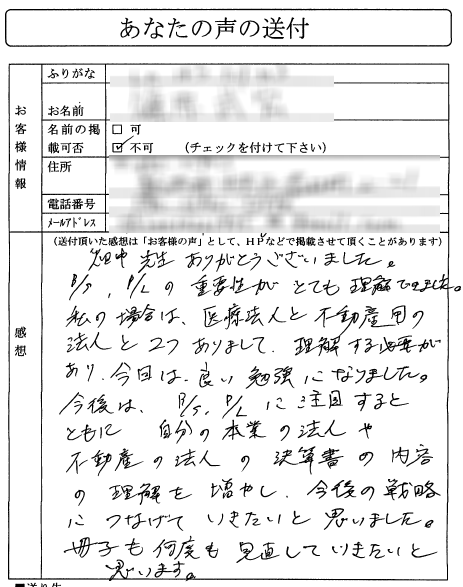 あなたの声の送付
お客様情報
ふりがな
お名前
名前の掲載可否
□ 可
☑ 不可 (チェックを付けて下さい)
住所
電話番号
メールアドレス
感想
(送付頂いた感想は「お客様の声」として、HPなどで掲載させて頂くことがあります)
畑中先生ありがとうございました。
B/S, P/Lの重要性がとても理解できました。
私の場合は、医療法人と不動産用の
法人と2つありまして、理解する必要が
あり、今回は、良い勉強になりました。
今後は、B/S, P/Lに注目すると
ともに 自分の本業の法人や
不動産の法人の決算書の内容
の理解を増やし、今後の戦略
につなげていきたいと思いました。
冊子も何度も見直していきたいと
思います。